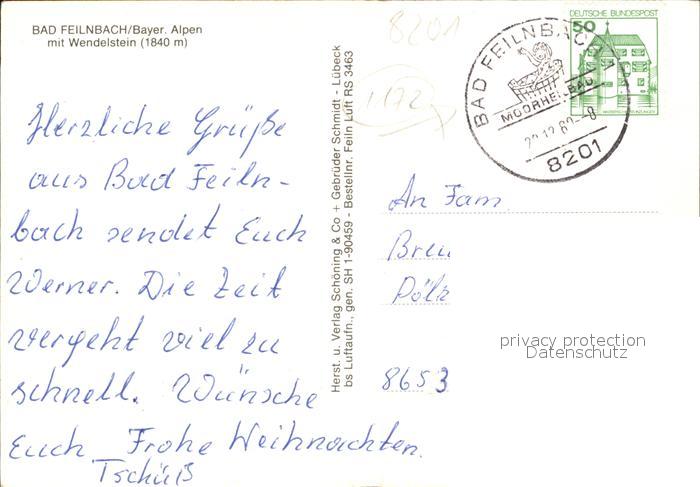 BAD FEILNBACH/Bayer. Alpen
mit Wendelstein (1840 m)
Herzliche Grüße
aus Bad Feiln-
bach sendet Euch
Werner. Die Zeit
vergeht viel zu
schnell. Wünsche
Euch Frohe Weihnachten.
Tschüß
Herst. u. Verlag Schöning & Co + Gebrüder Schmidt - Lübeck
bs Luftaufn., gen. SH 1-90459 - Bestellnr. Feiln Luft RS 3463
8201
1172
DEUTSCHE BUNDESPOST
50
BAD FEILNBACH 1
MOORHEILBAD
8201
An Fam.
Breu
Pölz
8653
privacy protection
Datenschutz